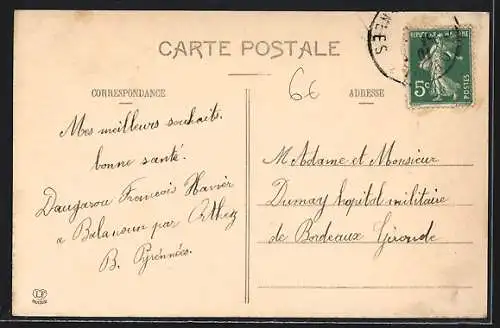 CARTE POSTALE
CORRESPONDANCE
ADRESSE
66
REPUBLIQUE FRANÇAISE
5c
POSTES
Mes meilleurs souhaits.
bonne santé.
Daugarou François Xavier
a Balansun par Orthez
B. Pyrénnées.
M Adame et Monsieur
Dumay hopital militaire
de Bordeaux Gironde